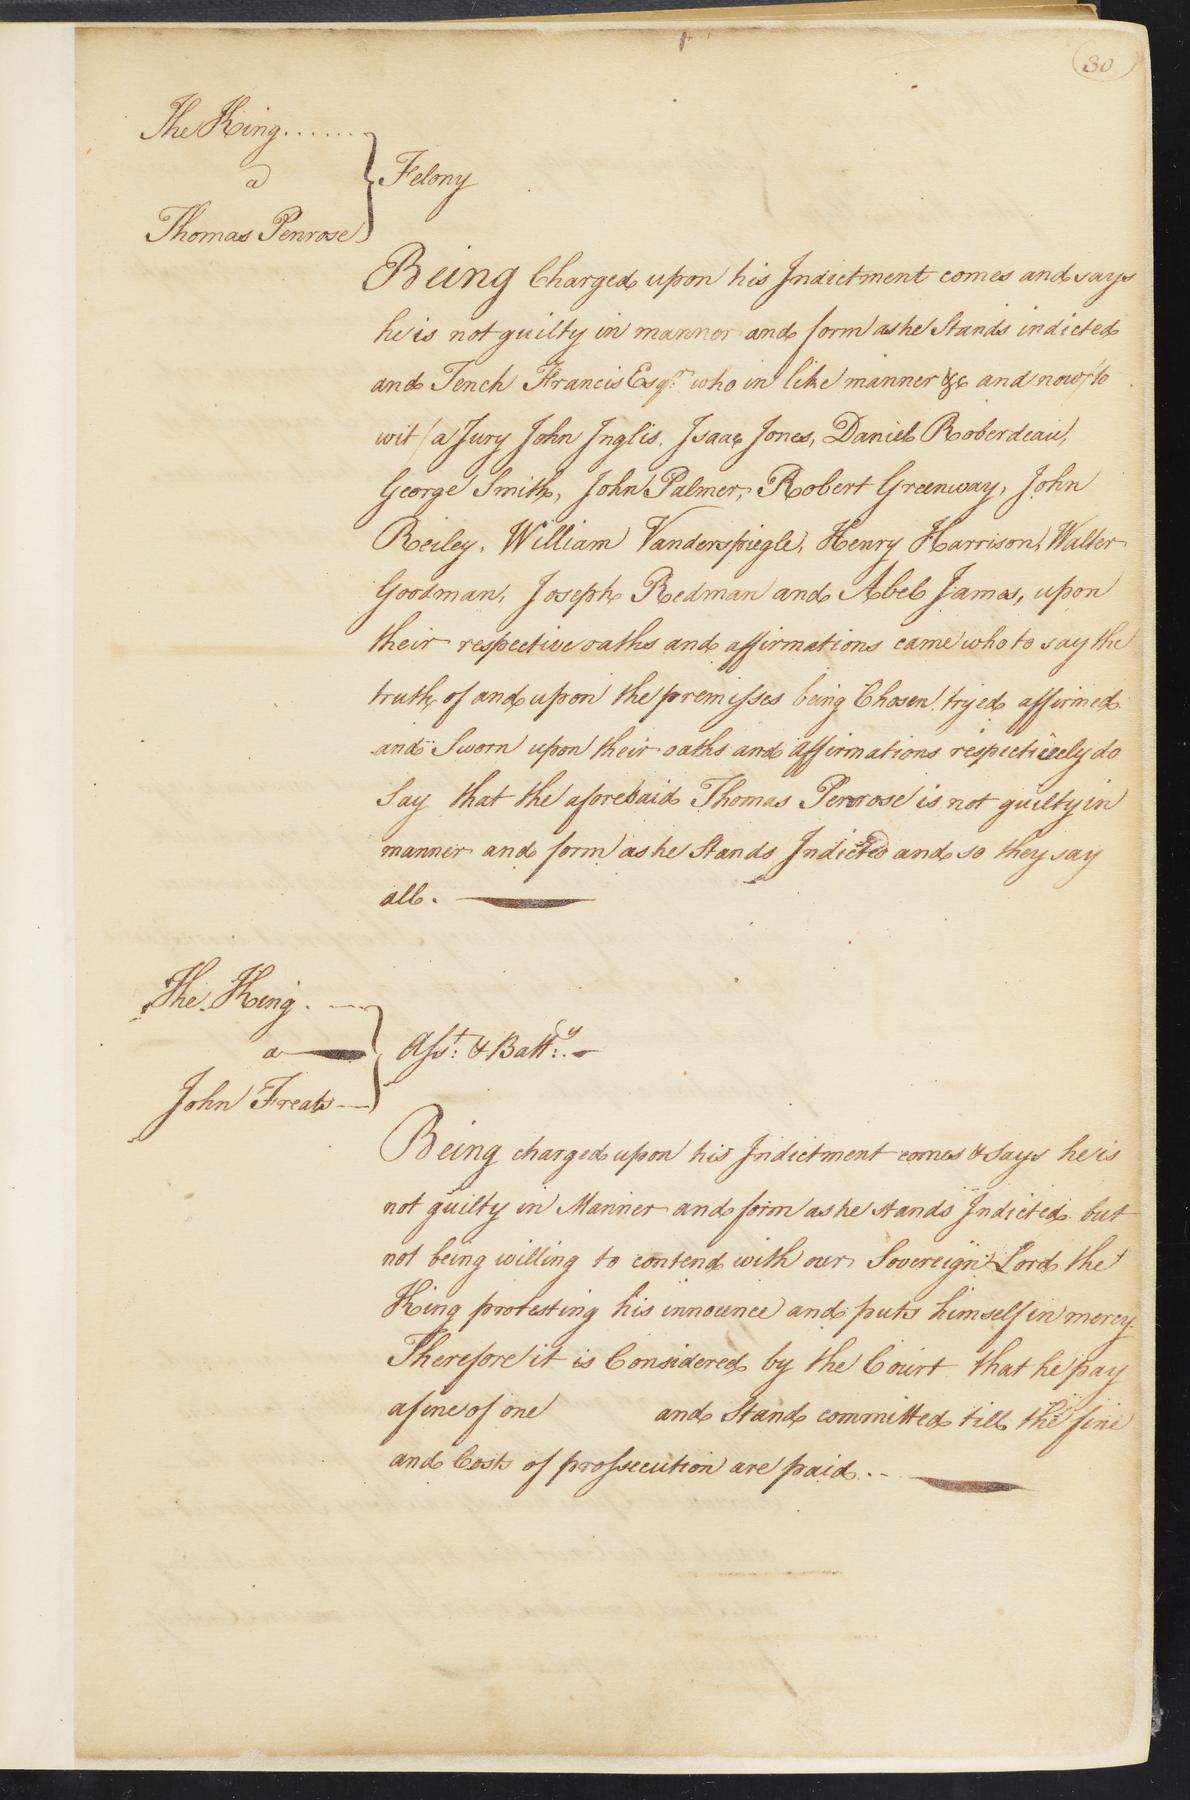 30
The King......
a
Thomas Penrose
Felony
Being Charged upon his Indictment comes and says
he is not guilty in manner and form as he Stands indicted
and Tench Francis Esqr. who in like manner &c and now (to
wit) a Jury John Inglis, Isaac Jones, Daniel Roberdeau,
George Smith, John Palmer, Robert Greenway, John
Reiley, William Vanderspiegle, Henry Harrison, Walter
Goodman, Joseph Redman and Abel James, upon
their respective oaths and affirmations came who to say the
truth of and upon the premisses being Chosen tryed affirmed
and Sworn upon their oaths and affirmations respectively do
Say that the aforesaid Thomas Penrose is not guilty in
manner and form as he Stands Indicted and so they say
all.
The King.
a
John Freats
Asst: & Batty:
Being charged upon his Indictment comes & Says he is
not guilty in Manner and form as he stands Indicted but
not being willing to contend with our Sovereign Lord the
King protesting his innocence and puts himself in mercy
Therefore it is Considered by the Court that he pay
a fine of one and Stand committed till the fine
and Costs of prossecution are paid.